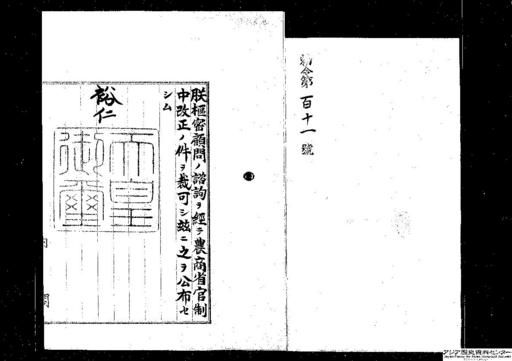 勅令第百十一號
朕樞密顧問ノ諮詢ヲ經テ農商省官制
中改正ノ件ヲ裁可シ玆ニ之ヲ公布セ
シム
裕仁
天皇
御璽
アジア歴史資料センター